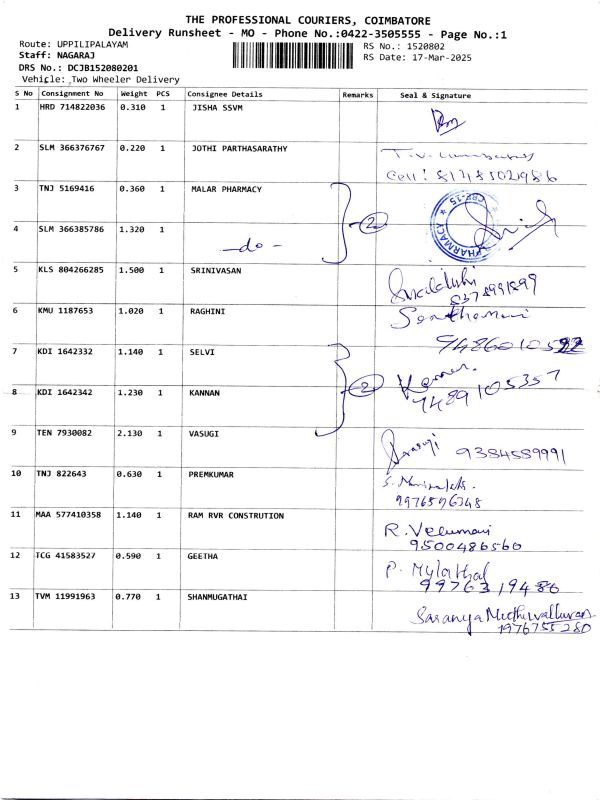 THE PROFESSIONAL COURIERS, COIMBATORE
Delivery Runsheet - MO - Phone No.:0422-3505555 - Page No.:1
Route: UPPILIPALAYAM RS No.: 1520802
Staff: NAGARAJ RS Date: 17-Mar-2025
DRS No.: DCJB152080201
Vehicle: Two Wheeler Delivery
S No Consignment No Weight PCS Consignee Details Remarks Seal & Signature
1 HRD 714822036 0.310 1 JISHA SSVM
2 SLM 366376767 0.220 1 JOTHI PARTHASARATHY T.V.
Cell:
3 TNJ 5169416 0.360 1 MALAR PHARMACY 2 PHARMACY CBE-15
4 SLM 366385786 1.320 1 -do-
5 KLS 804266285 1.500 1 SRINIVASAN
8375991899
6 KMU 1187653 1.020 1 RAGHINI Senthamani
7 KDI 1642332 1.140 1 SELVI 2
8 KDI 1642342 1.230 1 KANNAN
7489105357
9 TEN 7930082 2.130 1 VASUGI Vasugi 9384589991
10 TNJ 822643 0.630 1 PREMKUMAR S.
9976596348
11 MAA 577410358 1.140 1 RAM RVR CONSTRUTION R. Velumani
9500486560
12 TCG 41583527 0.590 1 GEETHA P. Mylathal
9976319486
13 TVM 11991963 0.770 1 SHANMUGATHAI Saranya Muthuvalluvan
1976755280